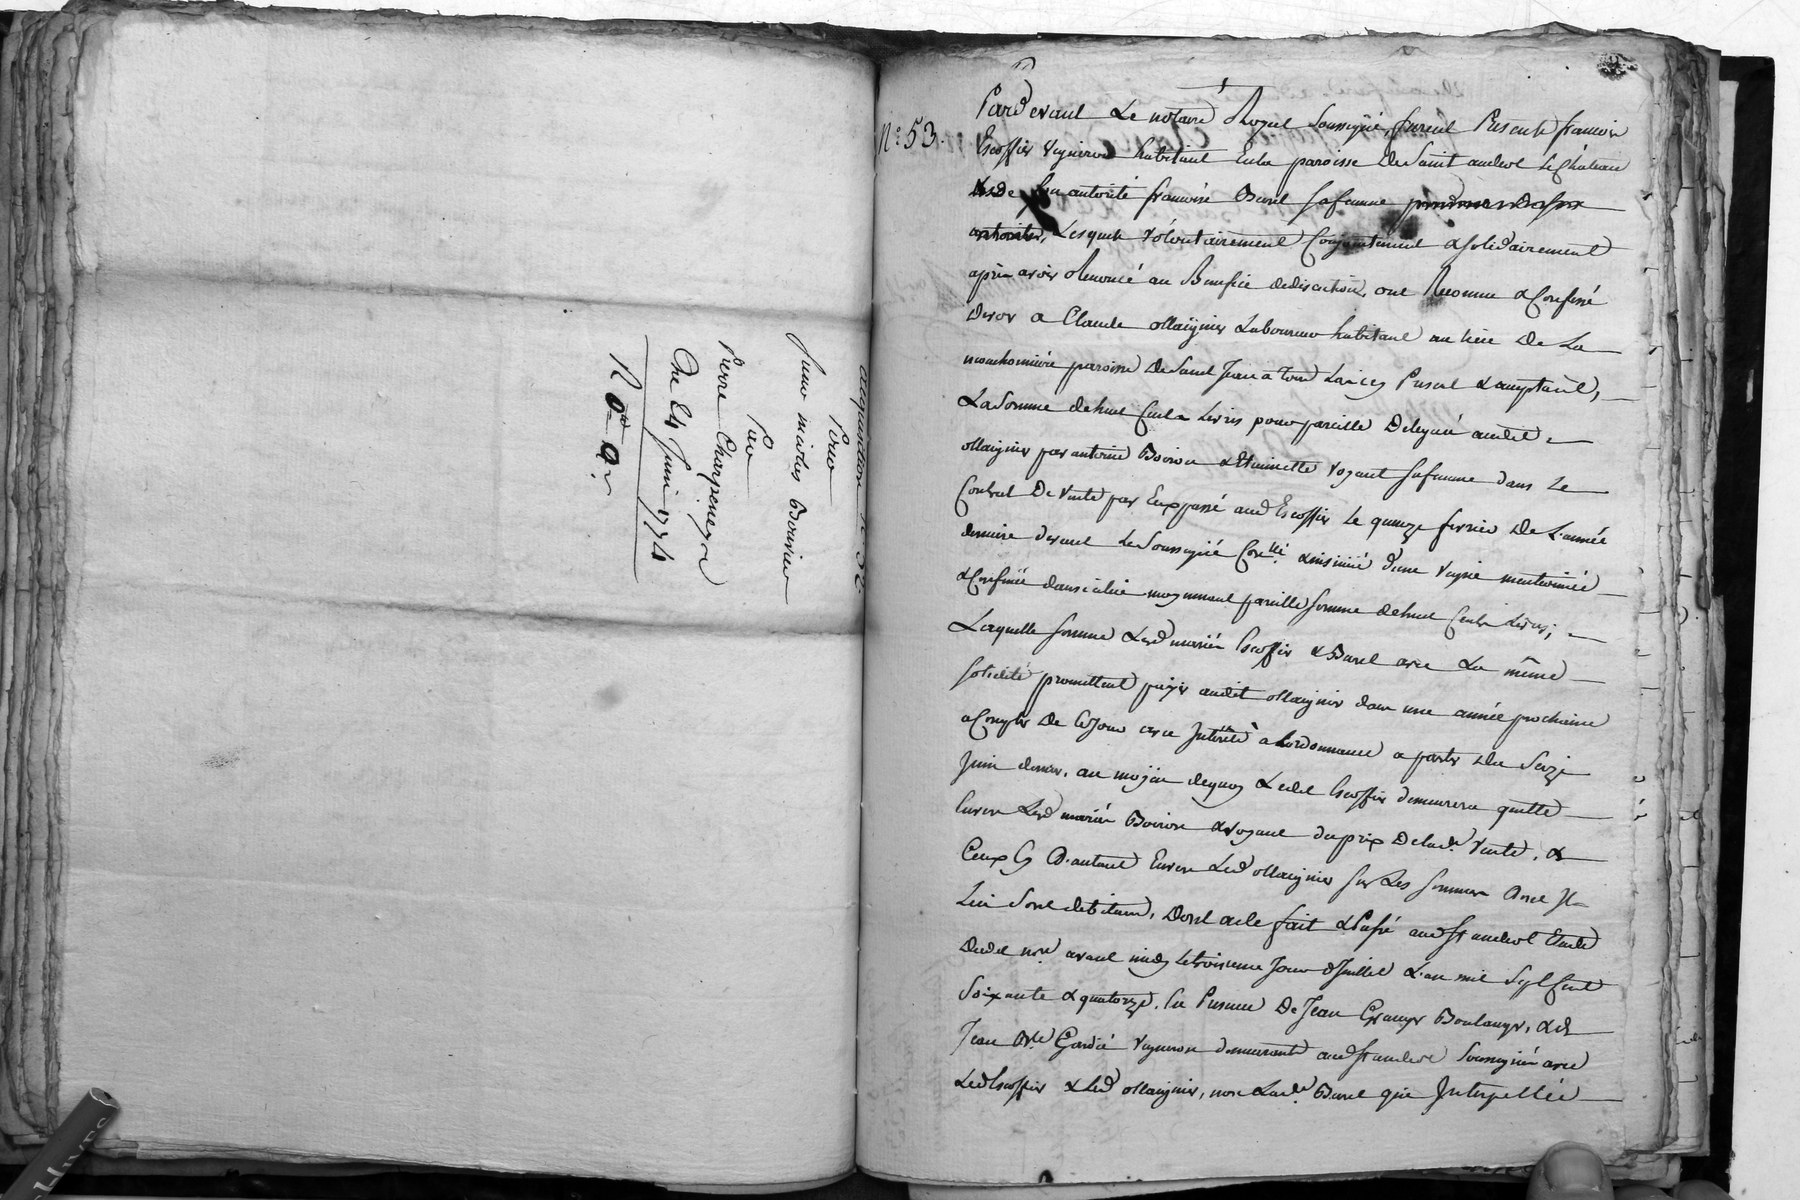 acquisition
Pour
sieur nicolas Bouvier
Par
Pierre Charpeney
Du 24 Juin 1774
N°. 53.
Pardevant Le notaire Royal Soussigné, furent Presents francois
Escoffier Vigneron habitant En la paroisse De Saint andeol Le Chateau
& de son autorité francoise Burel sa femme
Lesquels Volontairement Conjointement & solidairement
après avoir Renoncé au Benefice de discution, ont Reconnu & Confessé
devoir a Claude ollagnier Laboureur habitant au lieu De La
paroisse De Saint Jean a Toulas icy Present & acceptant,
La Somme de huit Cents Livres pour pareille Deleguée audit
ollagnier par antoine Boiron & Etiennette Vogant sa femme dans Le
Contrat De Vente par Eux passé aud. Escoffier Le quinze fevrier De L'année
derniere devant Le Soussigné Con.lé & insinué d'une Vigne mentionnée
& Confinée dans icelui moyennant pareille somme de huit Cents Livres;
Laquelle somme Lesd. mariés Escoffier & Burel avec La même
solidité promettent payer audit ollagnier dans une année prochaine
a Compter De Ce Jour avec Interêts a Lordonnance a partir Du Seize
Juin dernier, au moyen dequoy Ledit Escoffier demeurera quitte
Envers Lesd. mariés Boiron & Vogant du prix De lad.e Vente, &
Ceux Cy D'autant Envers Led. ollagnier sur Les sommes dont Ils
Lui sont debiteurs, Dont acte fait & Passé aud. St andeol Etude
Dudit no.re avant midy Le troisieme Jour de Juillet L'an mil Sept Cent
Soixante & quatorze, En Presence De Jean Granger Boulanger, & de
Jean B.te Gardié Vigneron demeurants aud. St andeol Soussignés avec
Led. Escoffier & Led. ollagnier, non Lad.e Burel qui Interpellée